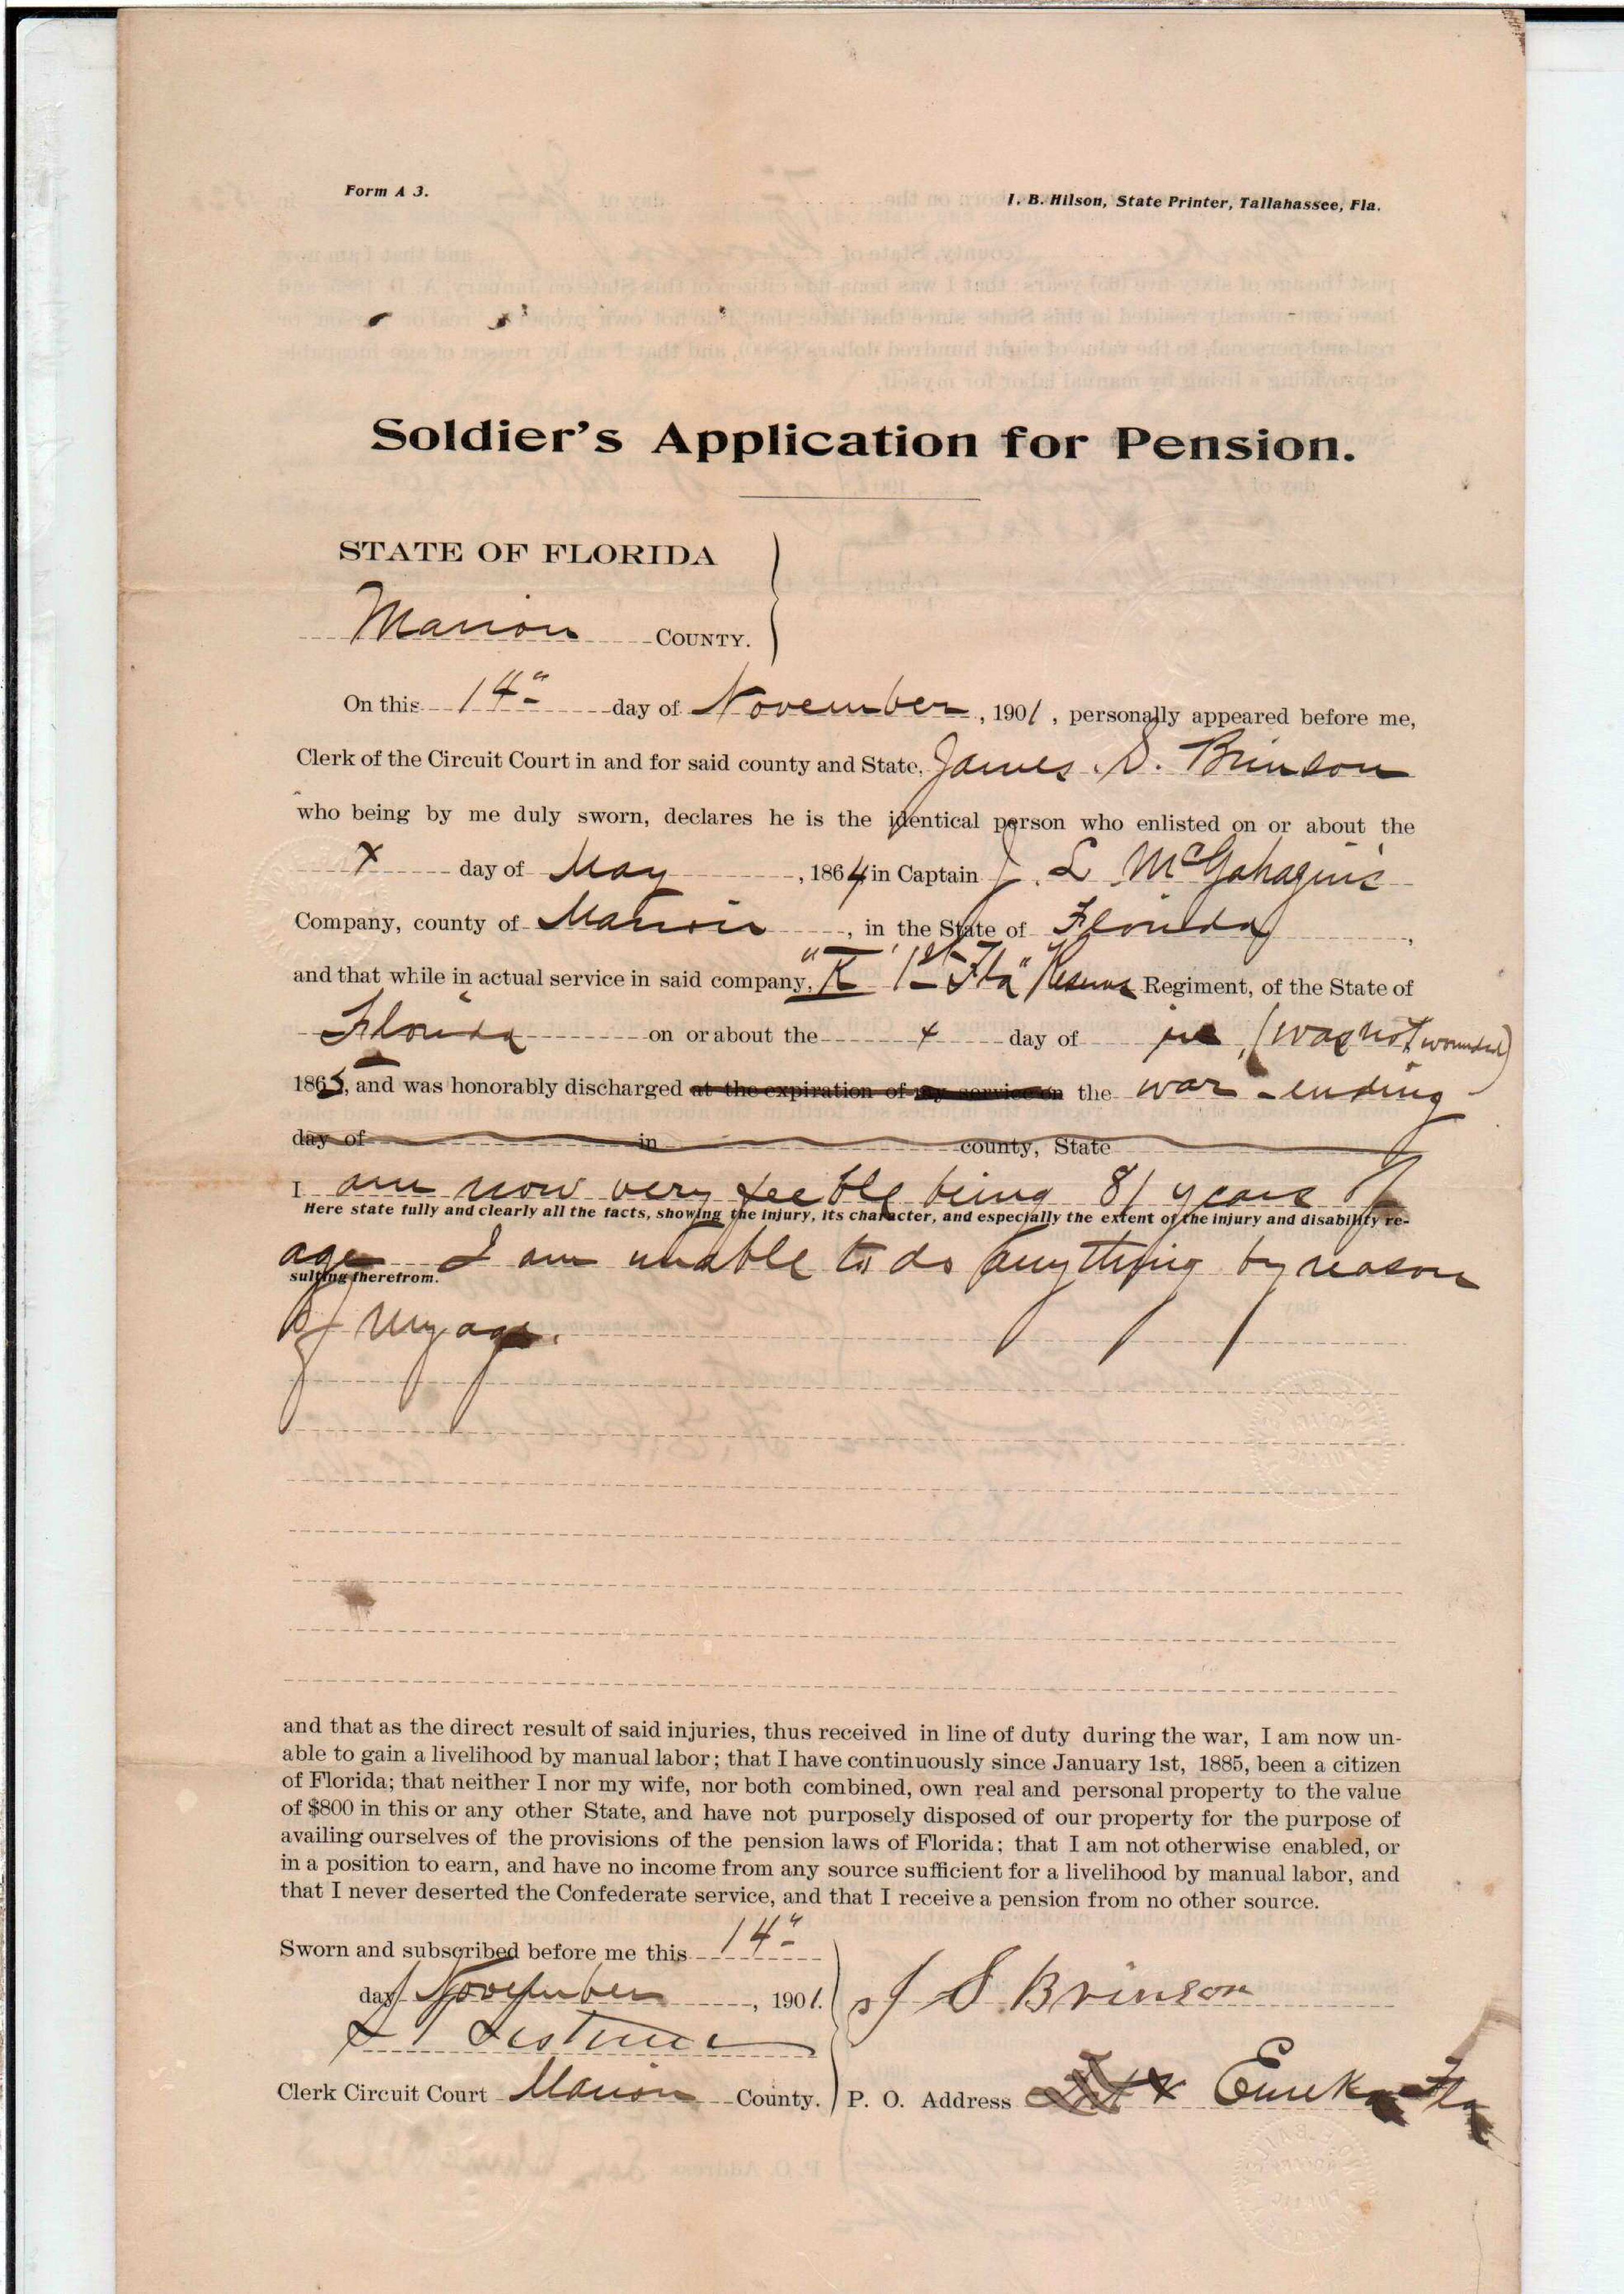 Form A 3.
I. B. Hilson, State Printer, Tallahassee, Fla.
Soldier's Application for Pension.
STATE OF FLORIDA
Marion COUNTY.
On this 14" day of November, 1901, personally appeared before me,
Clerk of the Circuit Court in and for said county and State, James S. Brinson
who being by me duly sworn, declares he is the identical person who enlisted on or about the
x day of May, 1864 in Captain J. L McGahagin's
Company, county of Marion, in the State of Florida,
and that while in actual service in said company, "K" 1st Fla" Reserves Regiment, of the State of
Florida on or about the x day of (was not wounded)
1865, and was honorably discharged at the expiration of my service on the war ending
day of in county, State
I am now very feeble being 81 years of
Here state fully and clearly all the facts, showing the injury, its character, and especially the extent of the injury and disability re-
age I am unable to do anything by reason
sulting therefrom.
of my age.
and that as the direct result of said injuries, thus received in line of duty during the war, I am now un-
able to gain a livelihood by manual labor; that I have continuously since January 1st, 1885, been a citizen
of Florida; that neither I nor my wife, nor both combined, own real and personal property to the value
of $800 in this or any other State, and have not purposely disposed of our property for the purpose of
availing ourselves of the provisions of the pension laws of Florida; that I am not otherwise enabled, or
in a position to earn, and have no income from any source sufficient for a livelihood by manual labor, and
that I never deserted the Confederate service, and that I receive a pension from no other source.
Sworn and subscribed before me this 14"
day of November, 1901.
J S Brinson
Clerk Circuit Court Marion County.
P. O. Address x Eureka Fla